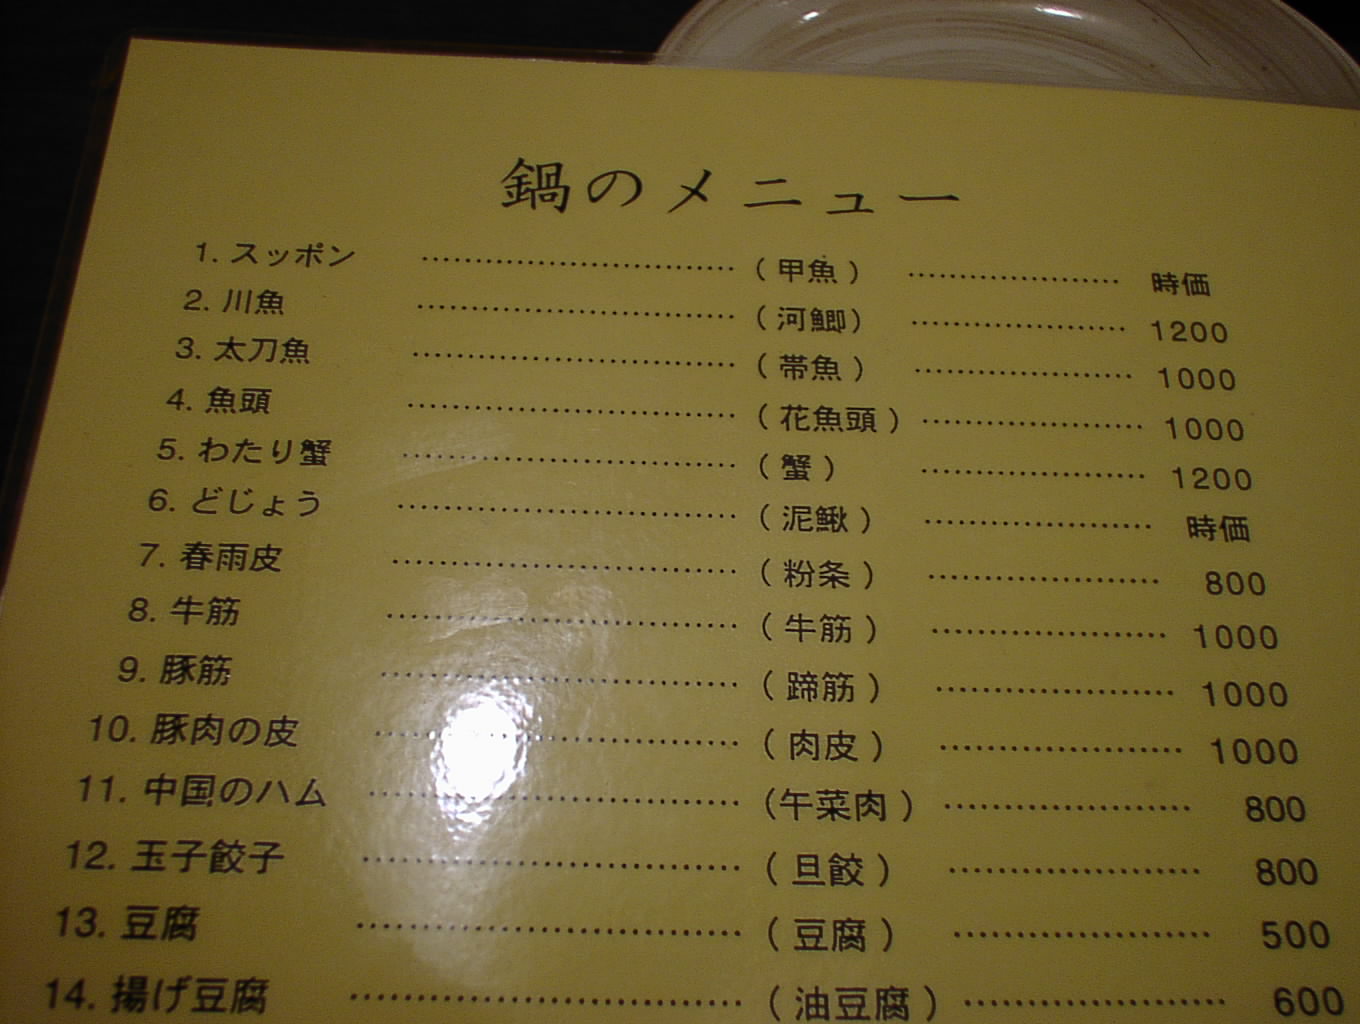 鍋のメニュー
1. スッポン ………… ( 甲魚 ) ………… 時価
2. 川魚 ………… ( 河鯽) ………… 1200
3. 太刀魚 ………… ( 帯魚 ) ………… 1000
4. 魚頭 ………… ( 花魚頭 ) ………… 1000
5. わたり蟹 ………… ( 蟹 ) ………… 1200
6. どじょう ………… ( 泥鰍 ) ………… 時価
7. 春雨皮 ………… ( 粉条 ) ………… 800
8. 牛筋 ………… ( 牛筋 ) ………… 1000
9. 豚筋 ………… ( 蹄筋 ) ………… 1000
10. 豚肉の皮 ………… ( 肉皮 ) ………… 1000
11. 中国のハム ………… (午菜肉 ) ………… 800
12. 玉子餃子 ………… ( 旦餃 ) ………… 800
13. 豆腐 ………… ( 豆腐 ) ………… 500
14. 揚げ豆腐 ………… ( 油豆腐 ) ………… 600